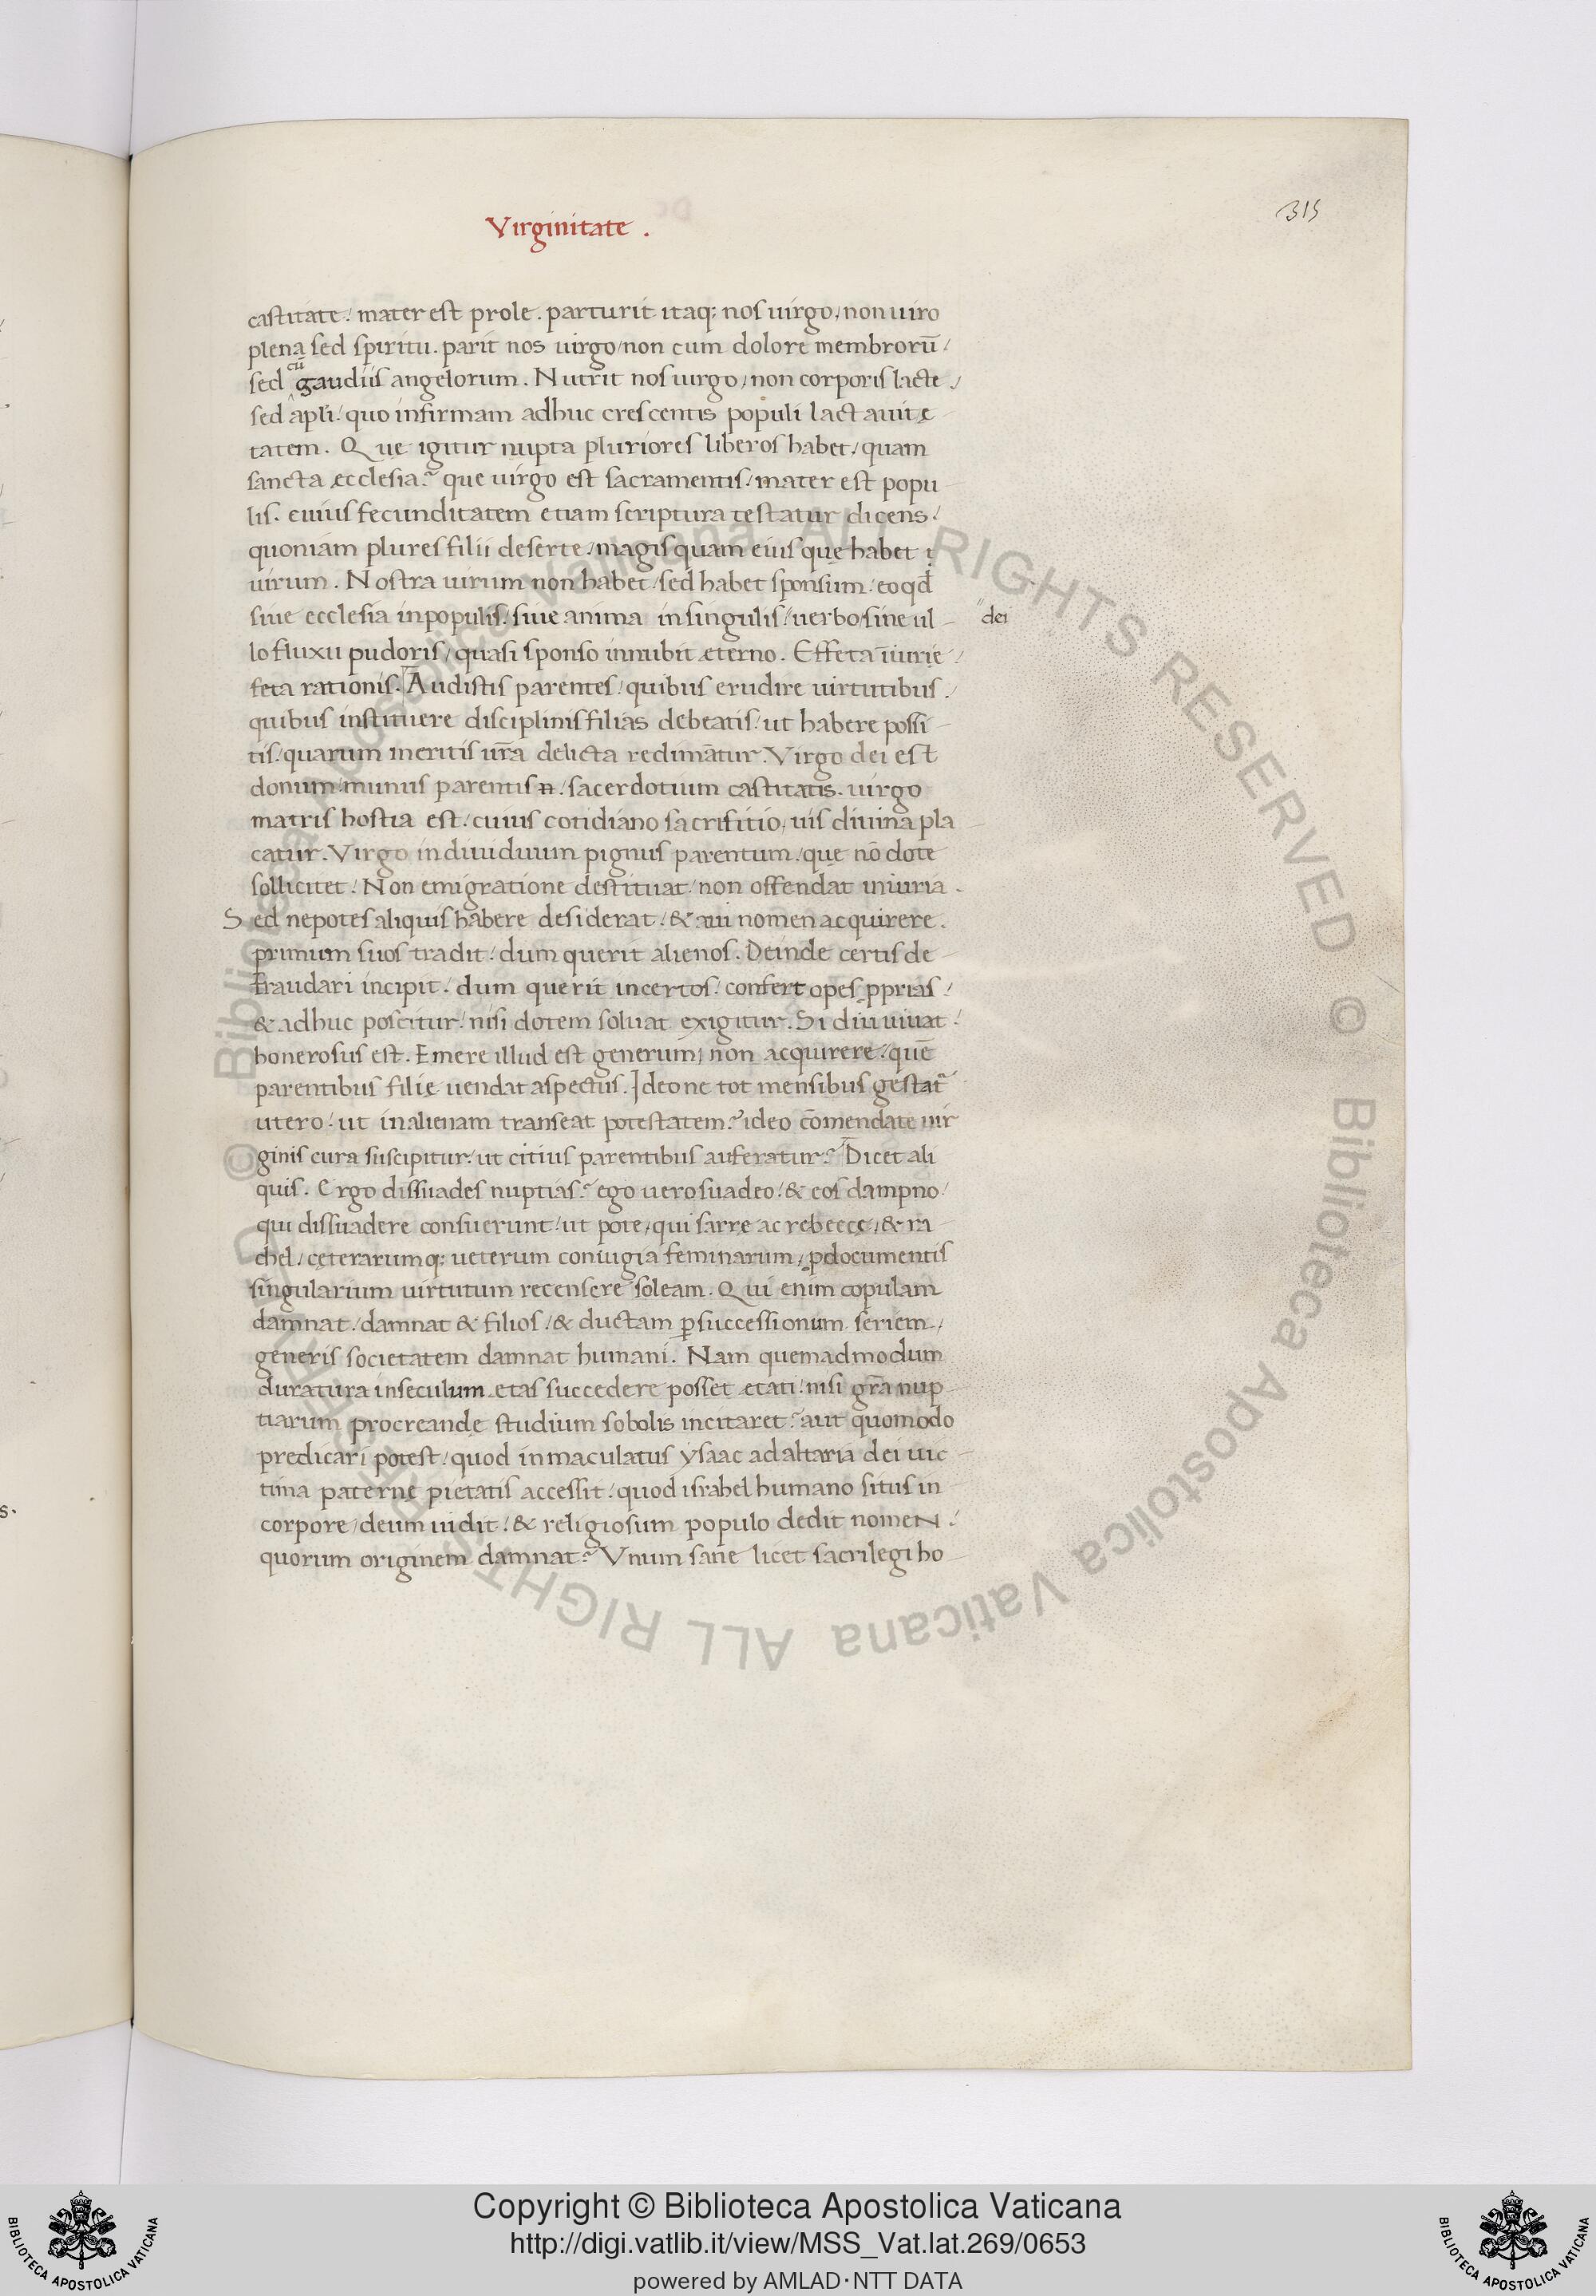 Virginitate .
315
castitate / mater est prole . parturit itaq; nos uirgo / non uiro
plena sed spiritu . parit nos uirgo / non cum dolore membrorū /
sed cū gaudiis angelorum . Nutrit nos uirgo / non corporis lacte /
sed apłi / quo infirmam adhuc crescentis populi lactauit ę
tatem . Que igitur nupta pluriores liberos habet / quam
sancta ecclesia ? que uirgo est sacramentis / mater est popu
lis . cuius fecunditatem etiam scriptura testatur dicens /
quoniam plures filii deserte / magis quam eius quę habet
uirum . Nostra uirum non habet / sed habet sponsum / eo qđ
siue ecclesia in populis / siue anima in singulis / uerbo / sine ul
dei
lo fluxu pudoris / quasi sponso innubit ęterno . Effeta iniurię /
feta rationis . Audistis parentes / quibus erudire uirtutibus /
quibus instituere disciplinis filias debeatis / ut habere possi
tis / quarum meritis ur̄a delicta redimātur . Virgo dei est
donum / munus parentis / sacerdotium castitatis . uirgo
matris hostia est / cuius cotidiano sacrifitio / uis diuina pla
catur . Virgo indiuiduum pignus parentum / que nō dote
sollicitet / Non emigratione destituat / non offendat iniuria .
Sed nepotes aliquis habere desiderat / & aui nomen acquirere .
primum suos tradit / dum querit alienos . Deinde certis de
fraudari incipit / dum querit incertos / confert opes pprias /
& adhuc poscitur / nisi dotem soluat exigitur . Si diu uiuat /
honerosus est . Emere illud est generum / non acquirere / quē
parentibus filię uendat aspectus . Ideo ne tot mensibus gestat̃
utero / ut in alienam transeat potestatem ? ideo cōmendate uir
ginis cura suscipitur / ut citius parentibus auferatur ? Dicet ali
quis . Ergo dissuades nuptias ? ego uero suadeo / & eos dampno /
qui dissuadere consuerunt / ut pote / qui sarrę ac rebeccę / & ra
chel / cęterarumq; ueterum coniugia feminarum / p documentis
singularium uirtutum recensere soleam . Qui enim copulam
damnat / damnat & filios / & ductam p successionum seriem /
generis societatem damnat humani . Nam quemadmodum
duratura in seculum etas succedere posset etati / nisi gr̄a nup
tiarum procreandę studium sobolis incitaret ? aut quomodo
predicari potest / quod inmaculatus ysaac ad altaria dei uic
tima paternę pietatis accessit / quod israhel humano situs in
corpore / deum uidit / & religiosum populo dedit nomen /
quorum originem damnat ? Vnum sane licet sacrilegi ho
© Biblioteca Apostolica Vaticana ALL RIGHTS RESERVED © Biblioteca Apostolica Vaticana ALL RIGHTS RESERVED
Copyright © Biblioteca Apostolica Vaticana
http://digi.vatlib.it/view/MSS_Vat.lat.269/0653
powered by AMLAD·NTT DATA
BIBLIOTECA APOSTOLICA VATICANA
BIBLIOTECA APOSTOLICA VATICANA